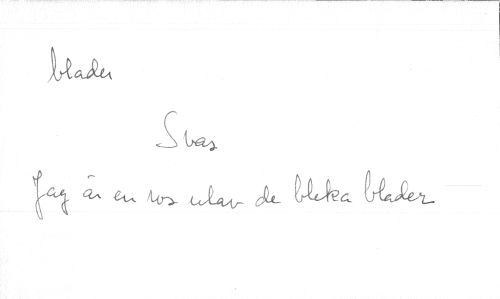 blader
Svas
Jag är en ros utav de bleka blader